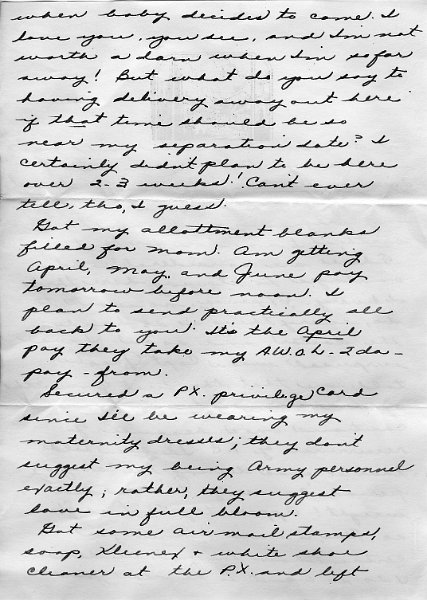 when baby decides to come. I
love you, you see, and I'm not
worth a darn when I'm so far
away! But what do you say to
having delivery away out here
if that time should be so
near my separation date? I
certainly didn't plan to be here
over 2-3 weeks! Can't ever
tell, tho, I guess.
Got my allottment blanks
filled for mom. Am getting
April, May, and June pay
tomorrow before noon. I
plan to send practically all
back to you. It's the April
pay they take my A.W.O.L - 2 da -
pay - from.
Secured a P.X. privilege card
since I'll be wearing my
maternity dresses; they don't
suggest my being Army personnel
exactly; rather, they suggest
love in full bloom.
Got some air mail stamps,
soap, Kleenex + white shoe
cleaner at the P.X. and left